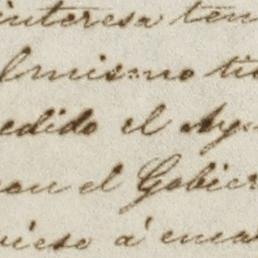 interesa ten
al mismo ti
edido el Ay
con el Gobier
vieso á enca